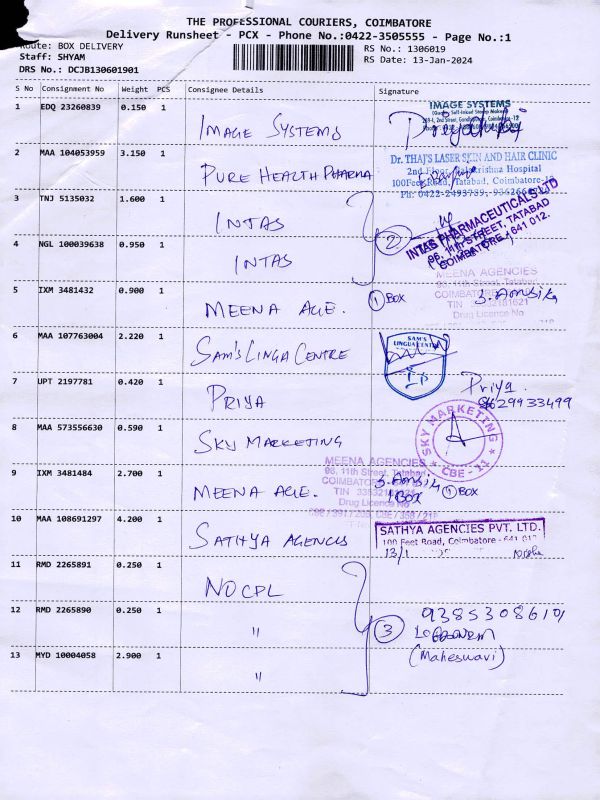 THE PROFESSIONAL COURIERS, COIMBATORE
Delivery Runsheet - PCX - Phone No.:0422-3505555 - Page No.:1
Route: BOX DELIVERY
Staff: SHYAM
DRS No.: DCJB130601901
RS No.: 1306019
RS Date: 13-Jan-2024
S No Consignment No Weight PCS Consignee Details Signature
1 EDQ 23260839 0.150 1 IMAGE SYSTEMS
IMAGE SYSTEMS
2 MAA 104053959 3.150 1 PURE HEALTH PHARMA
Dr. THAJ'S LASER SKIN AND HAIR CLINIC
2nd Floor, Krishna Hospital
100Feet Road, Tatabad, Coimbatore-12
Ph: 0422-2493739,
3 TNJ 5135032 1.600 1 INTAS
4 NGL 100039638 0.950 1 INTAS
2
INTAS PHARMACEUTICALS LTD
98, 11th STREET, TATABAD
COIMBATORE - 641 012.
5 IXM 3481432 0.900 1 MEENA AGE.
1 BOX
MEENA AGENCIES
98, 11th Street, Tatabad
COIMBATORE
TIN
Drug Licence No
6 MAA 107763004 2.220 1 SAM'S LINGA CENTRE
SAM'S
LINGUA CENTRE
7 UPT 2197781 0.420 1 PRIYA
Priya.
9629933499
8 MAA 573556630 0.590 1 SKY MARKETING
SKY MARKETING
CBE - 11
9 IXM 3481484 2.700 1 MEENA AGE.
MEENA AGENCIES
98, 11th Street, Tatabad
COIMBATORE
TIN
Drug Licence
1 BOX
1 BOX
10 MAA 108691297 4.200 1 SATHYA AGENCIES
SATHYA AGENCIES PVT. LTD.
100 Feet Road, Coimbatore - 641 012
13/1
11 RMD 2265891 0.250 1 NOCPL
12 RMD 2265890 0.250 1 "
3
(Maheswari)
13 MYD 10004058 2.900 1 "